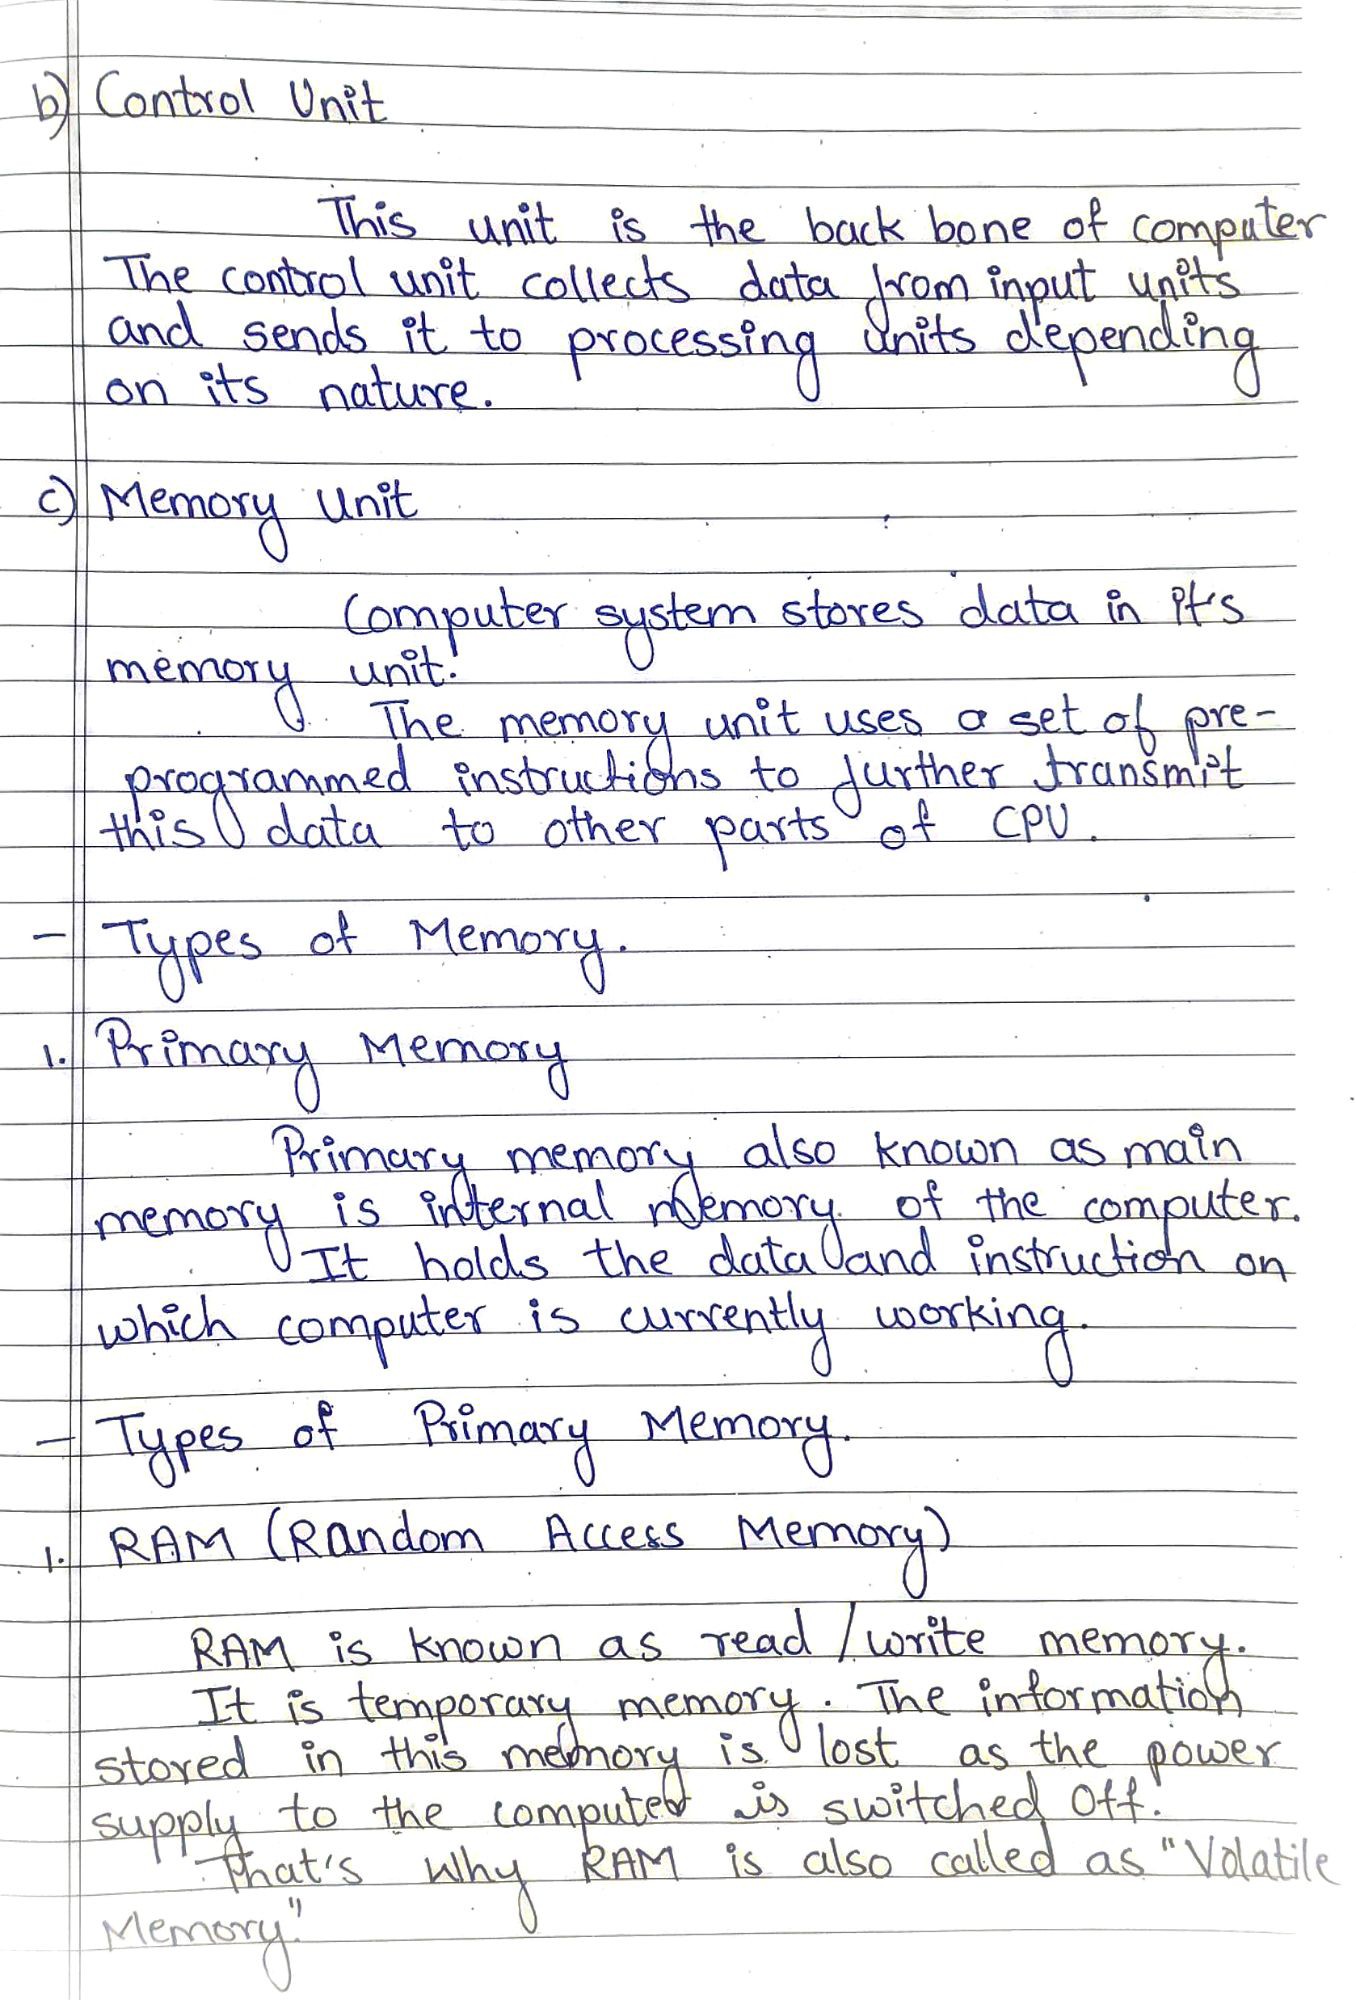 b) Control Unit
This unit is the back bone of computer
The control unit collects data from input units
and sends it to processing units depending
on its nature.
c) Memory Unit
Computer system stores data in it's
memory unit.
The memory unit uses a set of pre-
programmed instructions to further transmit
this data to other parts of CPU.
- Types of Memory.
1. Primary Memory
Primary memory also known as main
memory is internal memory of the computer.
It holds the data and instruction on
which computer is currently working.
- Types of Primary Memory.
1. RAM (Random Access Memory)
RAM is known as read / write memory.
It is temporary memory. The information
stored in this memory is lost as the power
supply to the computer is switched off.
That's why RAM is also called as "Volatile
Memory."